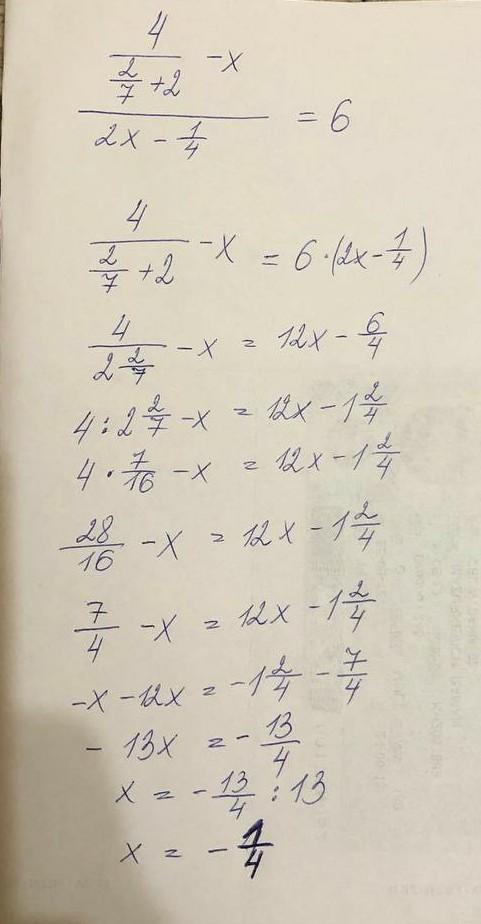 4/(2/7 + 2) - x
/ (2x - 1/4) = 6
4/(2/7 + 2) - x = 6 · (2x - 1/4)
4/(2 2/7) - x = 12x - 6/4
4 : 2 2/7 - x = 12x - 1 2/4
4 · 7/16 - x = 12x - 1 2/4
28/16 - x = 12x - 1 2/4
7/4 - x = 12x - 1 2/4
-x - 12x = -1 2/4 - 7/4
- 13x = - 13/4
x = - 13/4 : 13
x = - 1/4